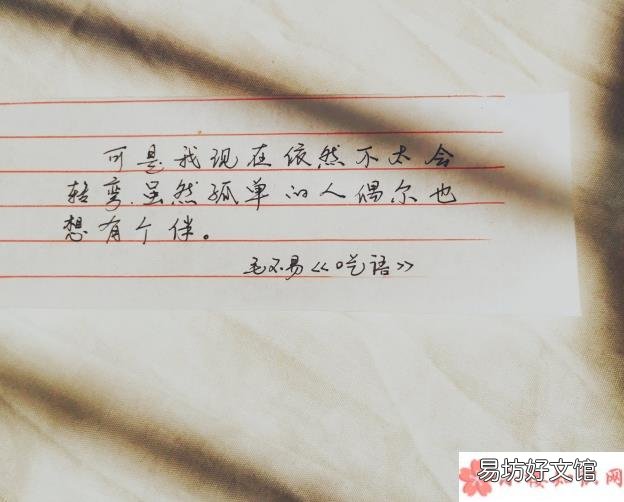 可是我现在依然不太会
转弯.虽然孤单的人偶尔也
想有个伴。
毛不易《呓语》
易坊好文馆